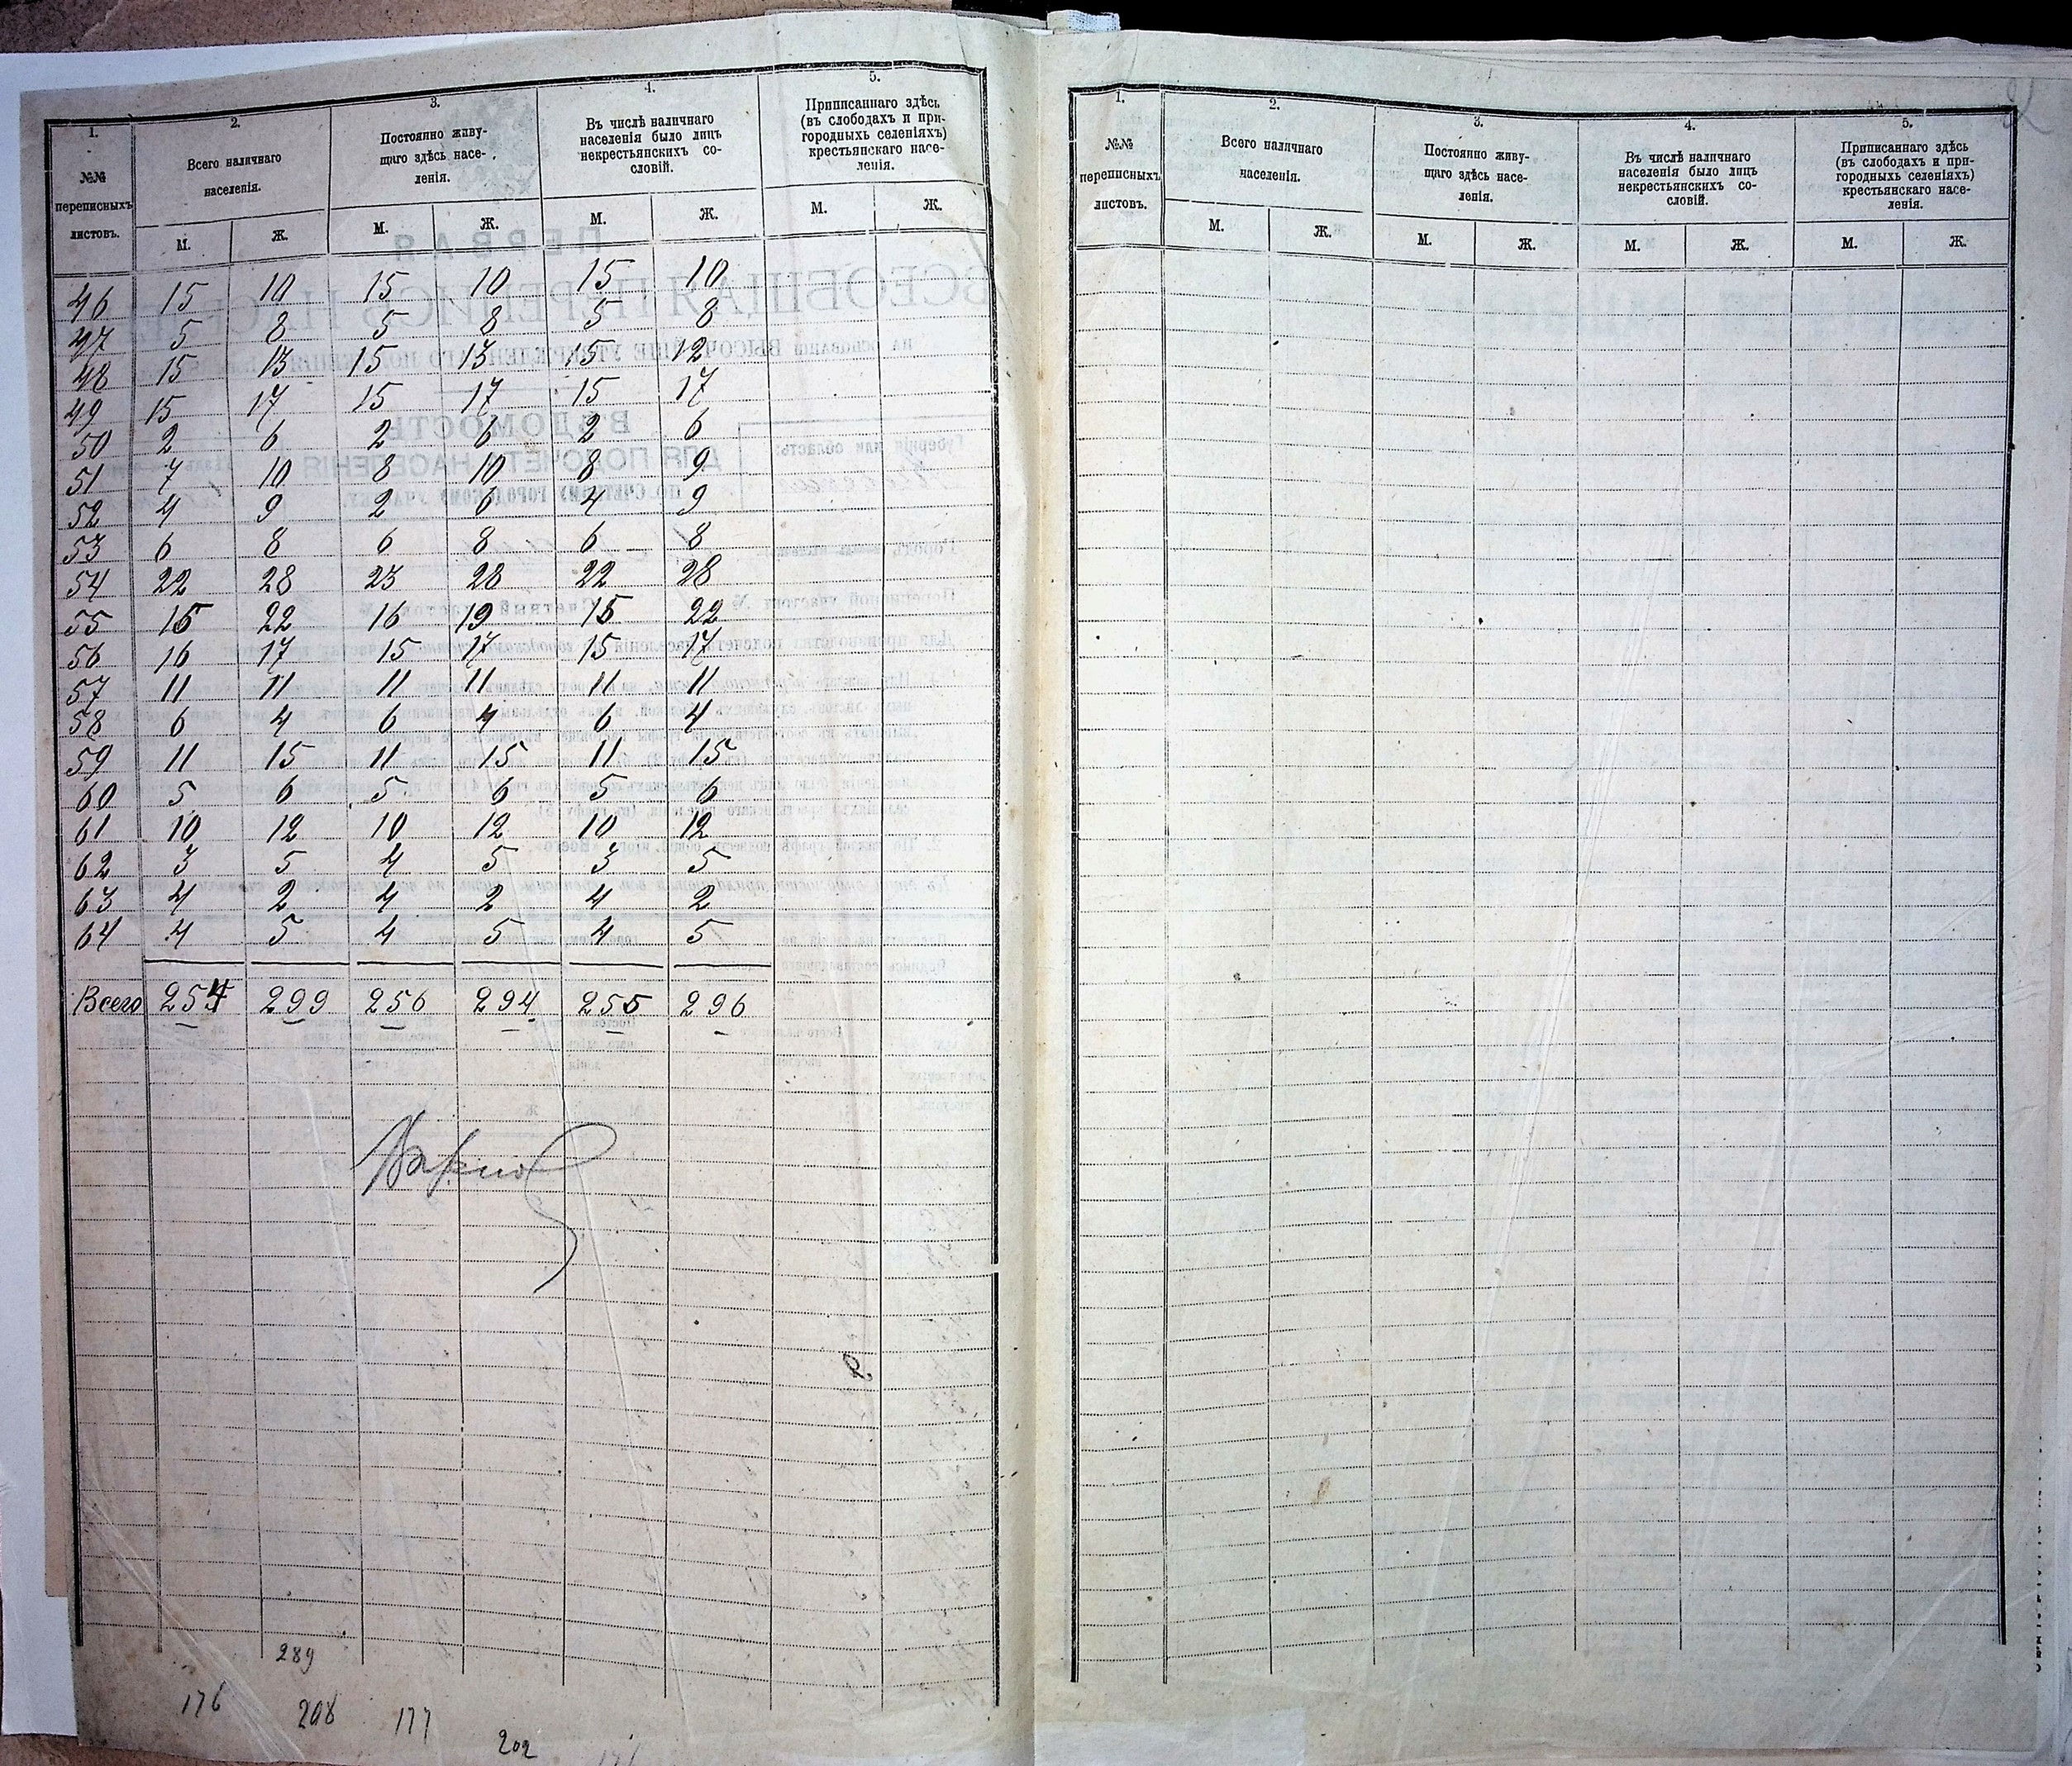 1. 2. 3. 4. 5.
№№ переписныхъ листовъ. Всего наличнаго населенія. Постоянно живущаго здѣсь населенія. Въ числѣ наличнаго населенія было лицъ некрестьянскихъ сословій. Приписаннаго здѣсь (въ слободахъ и пригородныхъ селеніяхъ) крестьянскаго населенія.
М. Ж. М. Ж. М. Ж. М. Ж.
46 15 10 15 10 15 10
47 5 8 5 8 5 8
48 15 13 15 13 15 12
49 15 17 15 17 15 17
50 2 6 2 6 2 6
51 7 10 8 10 8 9
52 4 9 2 6 4 9
53 6 8 6 8 6 8
54 22 28 23 28 22 28
55 15 22 16 19 15 22
56 16 17 15 17 15 17
57 11 11 11 11 11 11
58 6 4 6 4 6 4
59 11 15 11 15 11 15
60 5 6 5 6 5 6
61 10 12 10 12 10 12
62 3 5 4 5 3 5
63 4 2 4 2 4 2
64 4 5 4 5 4 5
Всего 254 299 256 294 255 296
289
176 208 177
202
1. 2. 3. 4. 5.
№№ переписныхъ листовъ. Всего наличнаго населенія. Постоянно живущаго здѣсь населенія. Въ числѣ наличнаго населенія было лицъ некрестьянскихъ сословій. Приписаннаго здѣсь (въ слободахъ и пригородныхъ селеніяхъ) крестьянскаго населенія.
М. Ж. М. Ж. М. Ж. М. Ж.